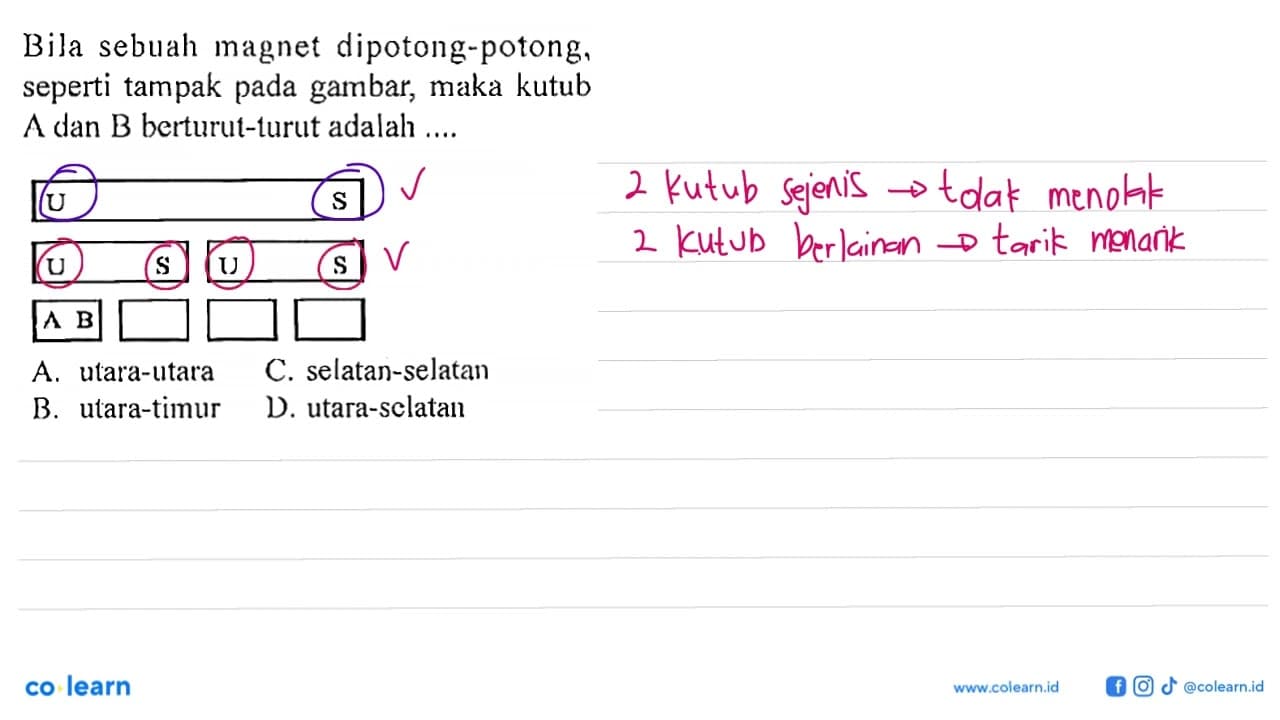 Bila sebuah magnet dipotong-potong,
seperti tampak pada gambar, maka kutub
A dan B berturut-turut adalah ....
U S ✓
U S U S ✓
A B
A. utara-utara C. selatan-selatan
B. utara-timur D. utara-selatan
2 kutub sejenis → tolak menolak
2 kutub berlainan → tarik menarik
co learn
www.colearn.id @colearn.id